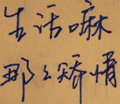 生活嘛
那么矫情